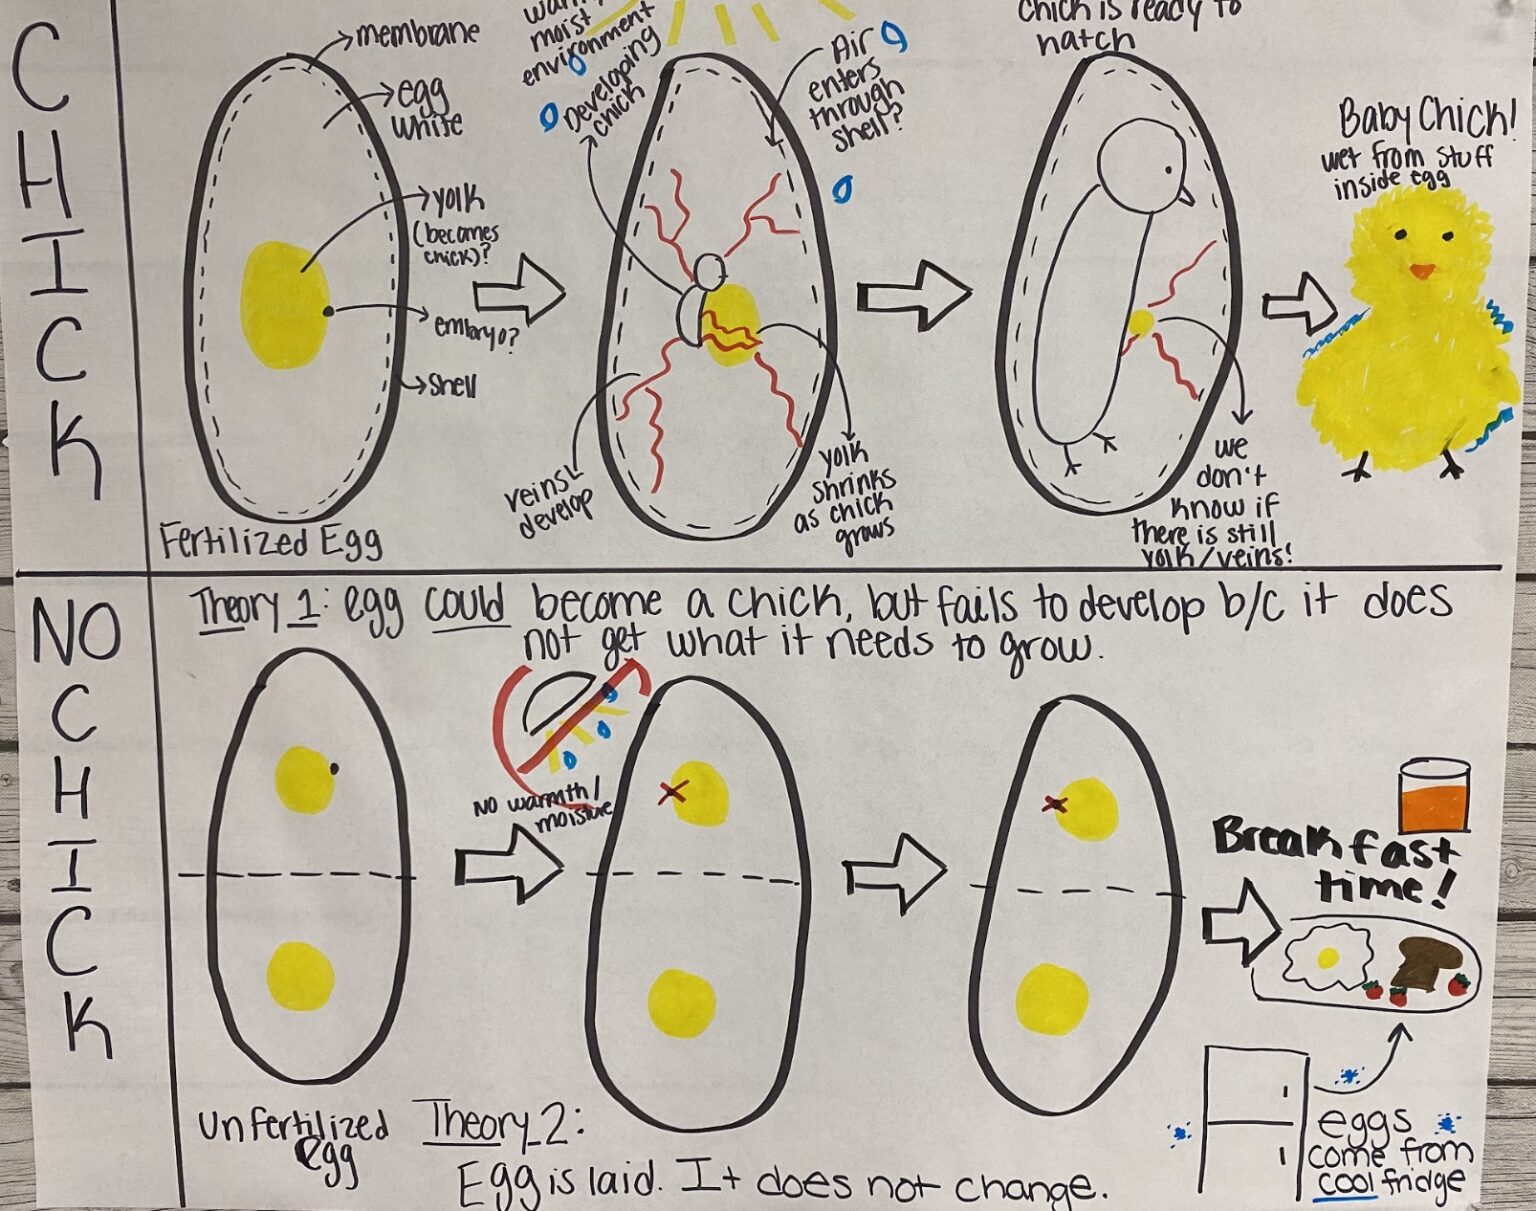 CHICK
membrane
egg
white
yolk
(becomes
chick)?
embryo?
shell
Fertilized Egg
moist
environment
Developing
chick
Air
enters
through
shell?
veins
develop
yolk
shrinks
as chick
grows
chick is ready to
hatch
we
don't
know if
there is still
yolk/veins!
Baby Chick!
wet from stuff
inside egg
NO
CHICK
Theory 1: egg could become a chick, but fails to develop b/c it does
not get what it needs to grow.
No warmth/
moisture
Breakfast
time!
Unfertilized
egg
Theory 2:
Egg is laid. It does not change.
eggs
come from
cool fridge